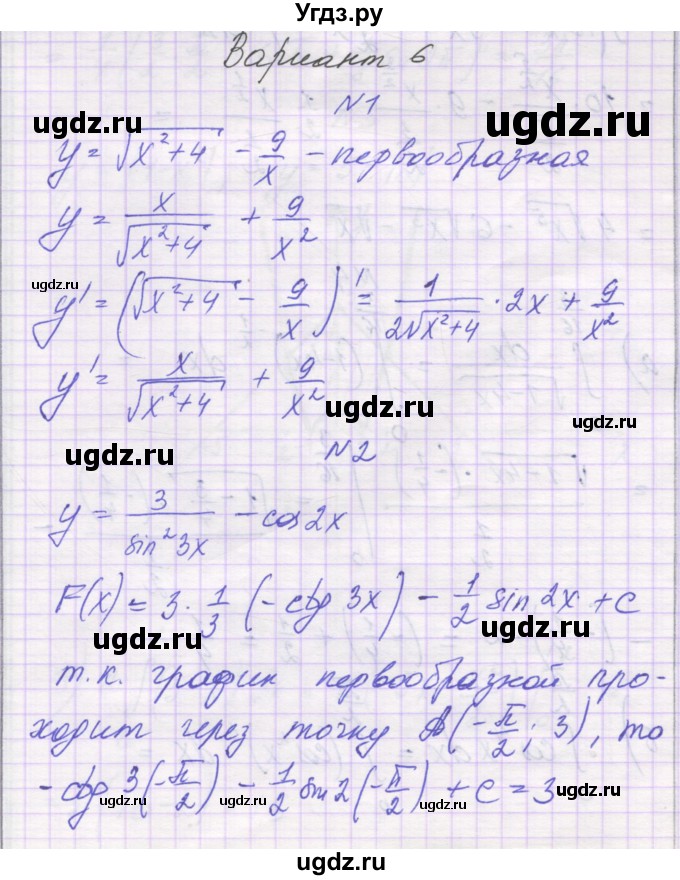 Угдз.ру
Вариант 6
№1
ugdz.ru ugdz.ru
y = √(x²+4) - 9/x - первообразная
y = x/√(x²+4) + 9/x²
ugdz.ru ugdz.ru
y' = (√(x²+4) - 9/x)' = 1/(2√(x²+4)) · 2x + 9/x²
y' = x/√(x²+4) + 9/x²
ugdz.ru
ugdz.ru
№2
y = 3/sin²3x - cos2x
F(x) = 3 · 1/3 (-ctg 3x) - 1/2 sin 2x + c
ugdz.ru ugdz.ru
т.к. график первообразной про-
ходит через точку A(-π/2; 3), то
ugdz.ru
-ctg 3(-π/2) - 1/2 sin 2(-π/2) + c = 3
ugdz.ru ugdz.ru ugdz.ru
ugdz.ru